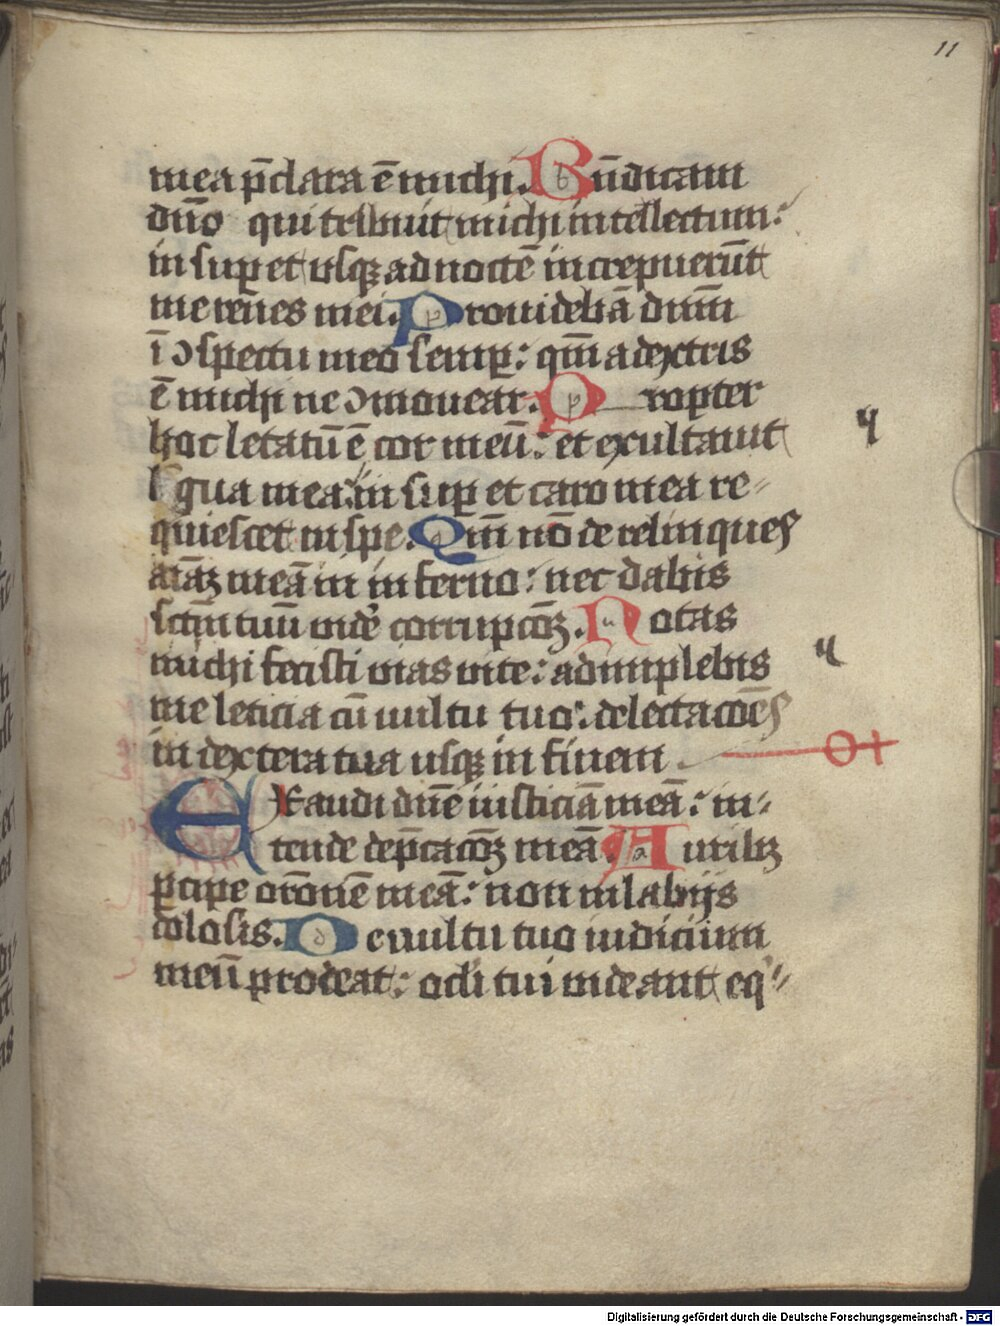 11
mea p̄clara ē michi. Bn̄dicam
dn̄o qui tribuit michi intellectum:
in sup et usqȝ ad noctē increpuerūt
me renes mei. Prouidebā dn̄m
ī ↄspectu meo semp: qm̄ a dextris
ē michi ne ↄmouear. Propter
hoc letatū ē cor meū: et exultauit
līgua mea: in sup et caro mea re-
quiescet in spe. Qm̄ nō derelinques
aīaȝ meā in inferno: nec dabis
sctm̄ tuū videͤ corrupcōȝ. Notas
michi fecisti vias vite: adimplebis
me leticia cū uultu tuo: delectacōes
in dextera tua usqȝ in finem
Exaudi dn̄e iusticiā meā: in-
tende dep̄cacōȝ meā. Auribȝ
pcipe orōnem meā: non in labijs
dolosis. De uultu tuo iudicium
meū prodeat: oc̄li tui videant eq'-
Digitalisierung gefördert durch die Deutsche Forschungsgemeinschaft - DFG